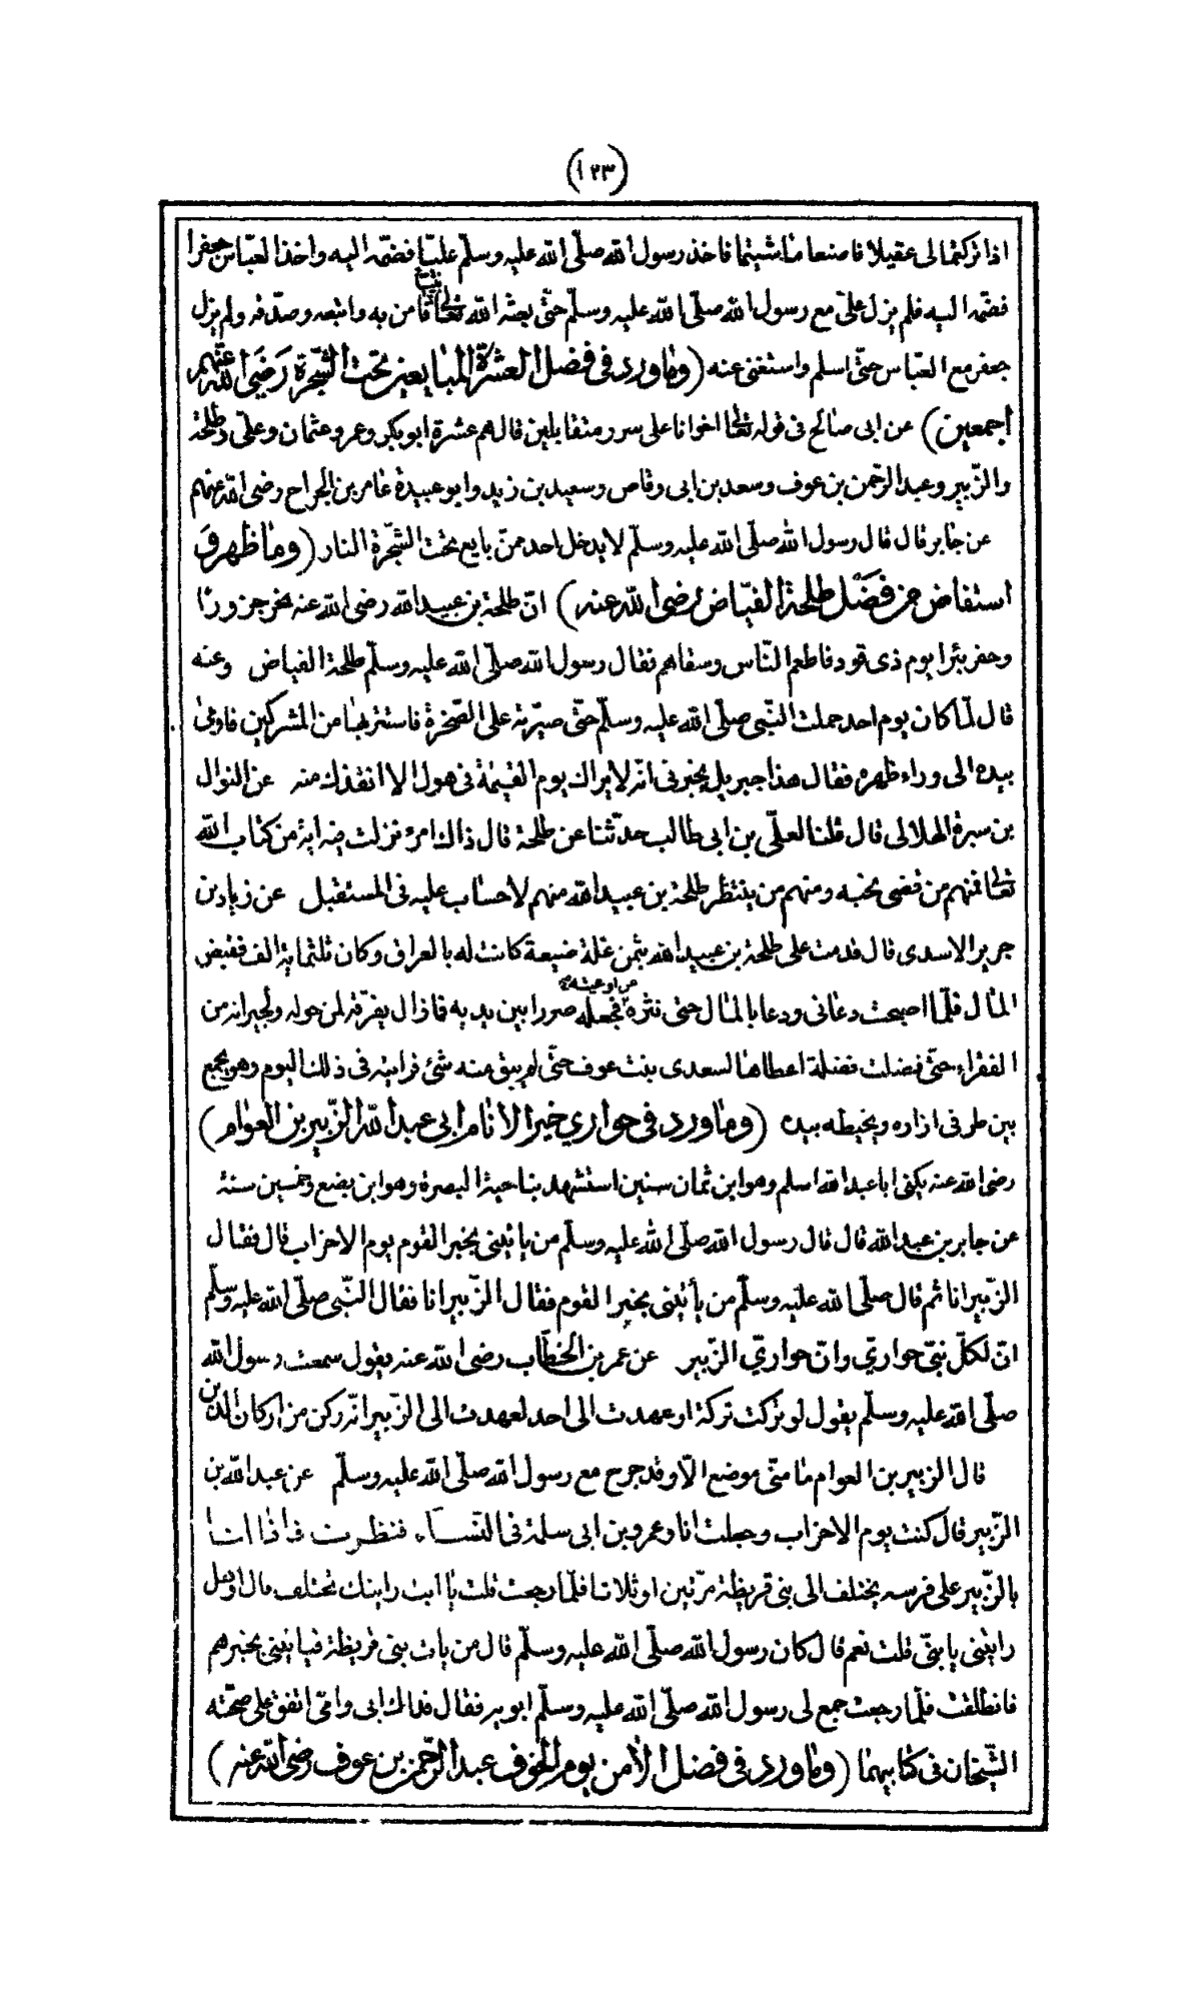 (١٢٣)
اذا تركتما لى عقيلا فاصنعا ما شيتما فاخذ رسول الله صلّى الله عليه وسلّم عليّا فضمّه اليه واخذ العبّاس جعفرا
فضمّه اليه فلم يزل علىّ مع رسول الله صلّى الله عليه وسلّم حتّى بعثه الله تعالى نبيّا فامن به واتبعه وصدّقه ولم يزل
جعفر مع العبّاس حتّى اسلم واستغنى عنه (وما ورد فى فضل العشرة المبايعين تحت الشّجرة رَضَى الله عنهم
اجمعين) عن ابى صالح فى قوله تعالى اخوانا على سرر متقابلين قال هم عشرة ابو بكر وعمر وعثمان وعلى وطلحة
والزّبير وعبد الرّحمن بن عوف وسعد بن ابى وقاص وسعيد بن زيد وابو عبيدة عامر بن الجراح رضى الله عنهم
عن جابر قال قال رسول الله صلّى الله عليه وسلّم لا يدخل احد ممّن بايع تحت الشّجرة النار (وما ظهر وَ
استفاض من فضَل طلحة الفيّاض رضى الله عنه) انّ طلحة بن عبيد الله رضى الله عنه نحر جزورًا
وحفر بئرا يوم ذى قود فاطعم النّاس وسقاهم فقال رسول الله صلّى الله عليه وسلّم طلحة الفياض وعنه
قال لمّا كان يوم احد حملت النّبى صلّى الله عليه وسلّم حتّى صيّرته على الصّخرة فاستتر بها من المشركين فاومى
بيده الى وراء ظهره فقال هذا جبريل يخبرنى انّه لا يراك يوم القيمة فى هول الا انقذك منه عن النوال
بن سبرة الهلالى قال قلنا لعلّى بن ابى طالب حدّثنا عن طلحة قال ذاك امرؤ نزلت فيه اية من كتاب الله
تعالى فمنهم من قضى نحبه ومنهم من ينتظر طلحة بن عبيد الله منهم لا حساب عليه فى المستقبل عن زياد بن
جرير الاسدى قال قدمت على طلحة بن عبيد الله بثمن غلة ضيعة كانت له بالعراق وكان ثلثماية الف فقبض
المال فلّما اصبحت دعانى ودعا بالمال حتى نثره من اوعيته فجعله صررا بين يديه فما زال يفرّقه لمن حوله ولجيرانه من
الفقراء حتّى فضلت فضلة اعطاها لسعدى بنت عوف حتّى لم يبق منه شئ فرايته فى ذلك اليوم وهو يجمع
بين طرفى ازاره ويخيطه بيده (وما ورد فى حواري خير الانام ابي عبد الله الزّبير بن العوام)
رضى الله عنه يكنى ابا عبد الله اسلم وهو ابن ثمان سنين استشهد بناحية البصرة وهو ابن بضع وخمسين سنة
عن جابر بن عبد الله قال قال رسول الله صلّى الله عليه وسلّم من ياتينى بخبر القوم يوم الاحزاب قال فقال
الزّبير انا ثم قال صلّى الله عليه وسلّم من يأتينى بخبر القوم فقال الزّبير انا فقال النّبى صلّى الله عليه وسلّم
انّ لكلّ نبّى حواريّ وانّ حواريّ الزّبير عن عمر بن الخطّاب رضى الله عنه يقول سمعت رسول الله
صلّى الله عليه وسلّم يقول لو تركت تركة او عهدت الى احد لعهدت الى الزّبير انّه ركن من اركان الدّين
قال الزبير بن العوام ما منّى موضع الّا وقد جرح مع رسول الله صلّى الله عليه وسلّم عن عبد الله بن
الزّبير قال كنت يوم الاحزاب وجعلت انا وعمرو بن ابى سلمة فى النّساء فنظرت فاذا انا
بالزّبير على فرسه يختلف الى بنى قريظة مرّتين او ثلاثا فلمّا رجعت قلت يا ابت رايتك تختلف قال او هل
رايتنى يا بنىّ قلت نعم قال كان رسول الله صلّى الله عليه وسلّم قال من يات بنى قريظة فياتينى بخبرهم
فانطلقت فلّما رجعت جمع لى رسول الله صلّى الله عليه وسلّم ابويه فقال فداك ابى وامّى اتفق على صحّته
الشّيخان فى كتابيهما (وما ورد فى فضل الامن يوم الخوف عبد الرّحمن بن عوف رضى الله عنه)